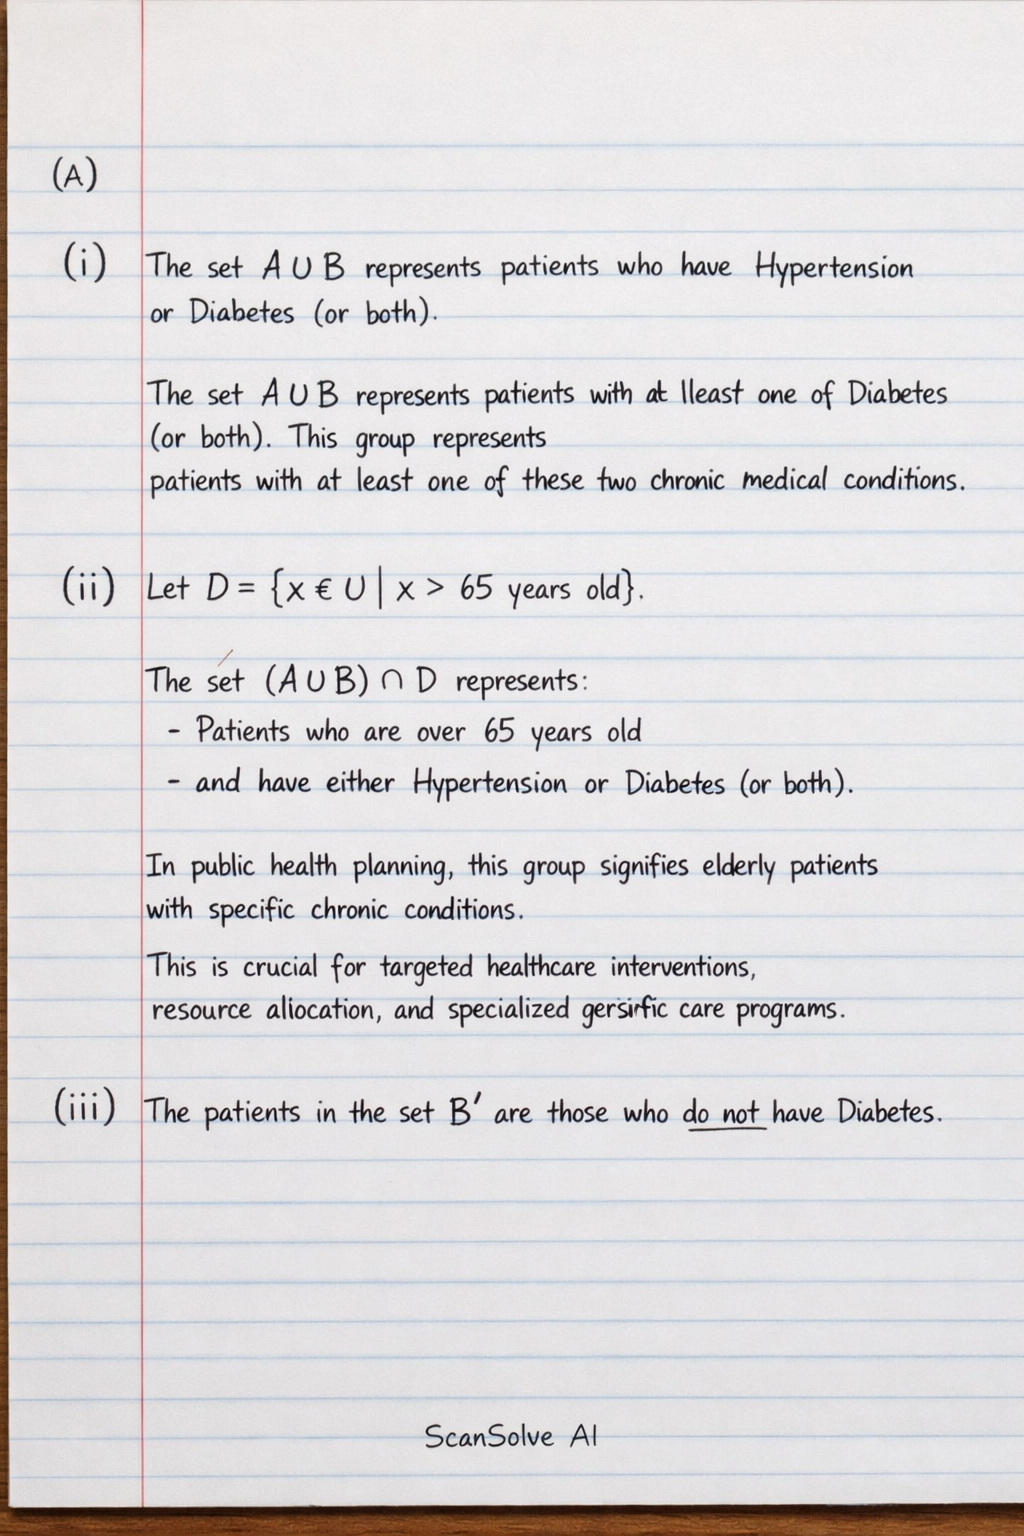 (A)
(i) The set A ∪ B represents patients who have Hypertension
or Diabetes (or both).
The set A ∪ B represents patients with at lleast one of Diabetes
(or both). This group represents
patients with at least one of these two chronic medical conditions.
(ii) Let D = {x € U | x > 65 years old}.
The set (A ∪ B) ∩ D represents:
- Patients who are over 65 years old
- and have either Hypertension or Diabetes (or both).
In public health planning, this group signifies elderly patients
with specific chronic conditions.
This is crucial for targeted healthcare interventions,
resource allocation, and specialized care programs.
(iii) The patients in the set B′ are those who do not have Diabetes.
ScanSolve AI